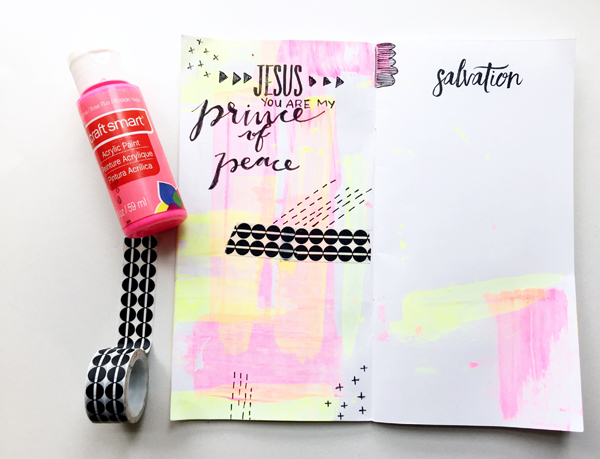 craft smart
Acrylic Paint
Peinture Acrylique
Pintura Acrílica
oz / 59 ml
JESUS
YOU ARE MY
prince
of
peace
salvation